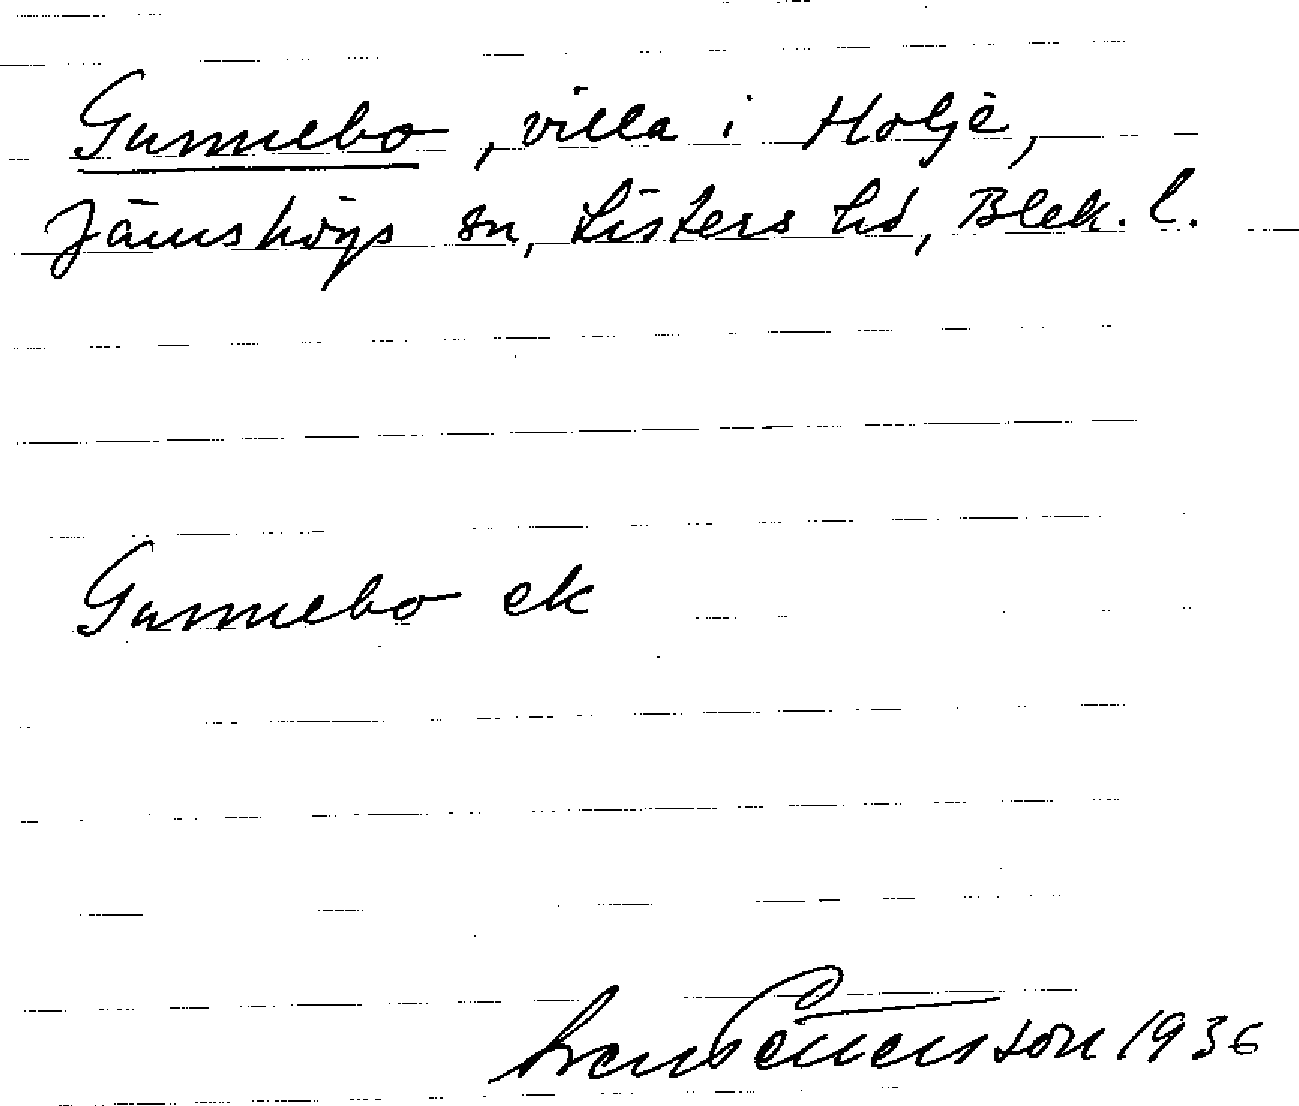 Gunnebo, villa i Holje,
Jämshögs sn, Listers hd, Blek. l.
Gunnebo ek
Sven Benettsson 1936